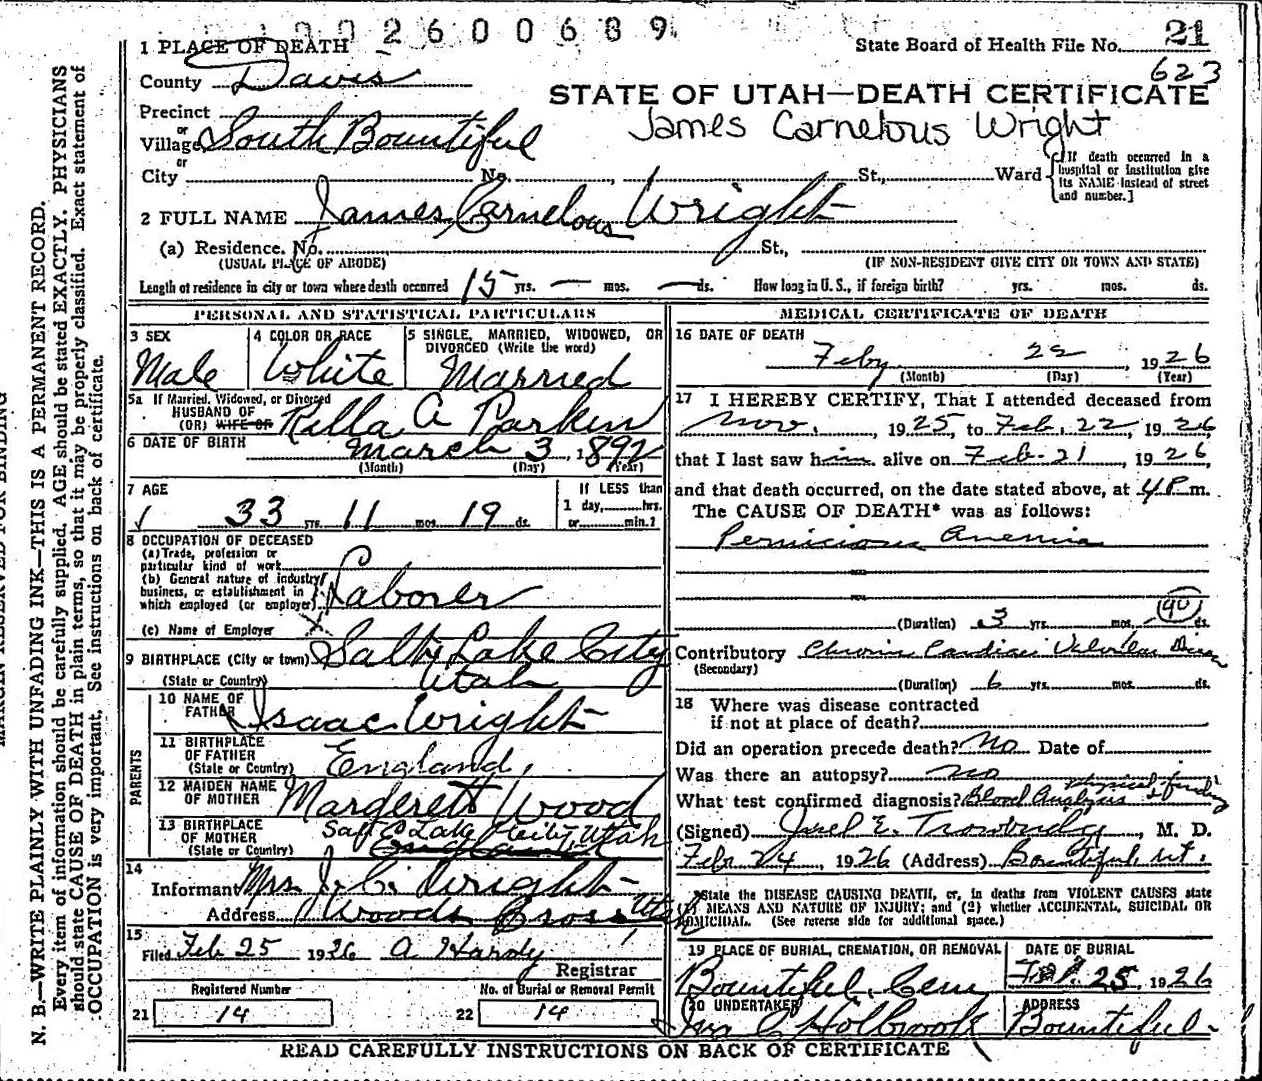 1002600689
State Board of Health File No. 21
623
1 PLACE OF DEATH
County Davis
STATE OF UTAH—DEATH CERTIFICATE
James Carnelous Wright
Precinct
or
Village South Bountiful
or
City No. , St., Ward
[If death occurred in a
hospital or institution give
its NAME instead of street
and number.]
2 FULL NAME James Carnelous Wright
(a) Residence. No. St.,
(USUAL PLACE OF ABODE) (IF NON-RESIDENT GIVE CITY OR TOWN AND STATE)
Length of residence in city or town where death occurred 15 yrs. — mos. — ds. How long in U. S., if foreign birth? yrs. mos. ds.
PERSONAL AND STATISTICAL PARTICULARS
3 SEX
Male
4 COLOR OR RACE
White
5 SINGLE, MARRIED, WIDOWED, OR
DIVORCED (Write the word)
Married
5a If Married, Widowed, or Divorced
HUSBAND OF
(OR) WIFE OF Rilla A Parkin
6 DATE OF BIRTH March 3, 1892
(Month) (Day) (Year)
7 AGE
33 yrs. 11 mos. 19 ds.
If LESS than
1 day, hrs.
or min.?
8 OCCUPATION OF DECEASED
(a) Trade, profession or
particular kind of work
(b) General nature of industry,
business, or establishment in
which employed (or employer) Laborer
(c) Name of Employer
9 BIRTHPLACE (City or town) Salt Lake City
(State or Country) Utah
PARENTS
10 NAME OF
FATHER Isaac Wright
11 BIRTHPLACE
OF FATHER
(State or Country) England,
12 MAIDEN NAME
OF MOTHER Margerett Wood
13 BIRTHPLACE
OF MOTHER Salt Lake City, Utah
(State or Country) England
14
Informant Mrs J. C. Wright
Address Woods Cross Utah
15
Filed Feb 25 1926 A Hardy
Registrar
Registered Number
21 14
No. of Burial or Removal Permit
22 14
MEDICAL CERTIFICATE OF DEATH
16 DATE OF DEATH
Feby 22, 1926
(Month) (Day) (Year)
17 I HEREBY CERTIFY, That I attended deceased from
Nov. , 1925, to Feb. 22, 1926
that I last saw him alive on Feb. 21, 1926,
and that death occurred, on the date stated above, at 4 P m.
The CAUSE OF DEATH* was as follows:
Pernicious Anemia
90
(Duration) 3 yrs. mos. ds.
Contributory Chronic Cardiac Valvular Disease
(Secondary)
(Duration) 6 yrs. mos. ds.
18 Where was disease contracted
if not at place of death?
Did an operation precede death? No Date of
Was there an autopsy? no
What test confirmed diagnosis? Blood Analysis + physical finding
(Signed) Joel E. Trowbridge, M. D.
Feb 24, 1926 (Address) Bountiful Ut.
*State the DISEASE CAUSING DEATH, or, in deaths from VIOLENT CAUSES state
(1) MEANS AND NATURE OF INJURY; and (2) whether ACCIDENTAL, SUICIDAL OR
HOMICIDAL. (See reverse side for additional space.)
19 PLACE OF BURIAL, CREMATION, OR REMOVAL
Bountiful Cem
DATE OF BURIAL
Feb. 25, 1926
20 UNDERTAKER
Holbrook
ADDRESS
Bountiful
READ CAREFULLY INSTRUCTIONS ON BACK OF CERTIFICATE
MARGIN RESERVED FOR BINDING
N. B.—WRITE PLAINLY WITH UNFADING INK—THIS IS A PERMANENT RECORD.
Every item of information should be carefully supplied. AGE should be stated EXACTLY. PHYSICIANS
should state CAUSE OF DEATH in plain terms, so that it may be properly classified. Exact statement of
OCCUPATION is very important. See instructions on back of certificate.